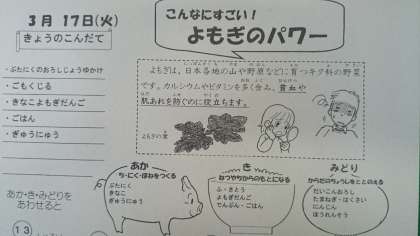 3月 17日(火)
きょうのこんだて
・ぶたにくのおろしじょうゆかけ
・ごもくじる
・きなこよもぎだんご
・ごはん
・ぎゅうにゅう
あか・き・みどりを
あわせると
13
こんなにすごい!
よもぎのパワー
よもぎは、日本各地の山や野原などに育つキク科の野菜
です。カルシウムやビタミンを多く含み、貧血や
肌あれを防ぐのに役立ちます。
よもぎの葉
あか
ち・にく・ほねをつくる
ぶたにく
きなこ
ぎゅうにゅう
き
ねつやちからのもとになる
ふ・さとう
よもぎだんご
でんぷん・ごはん
みどり
からだのちょうしをととのえる
だいこんおろし
たまねぎ・はくさい
にんじん
ほうれんそう